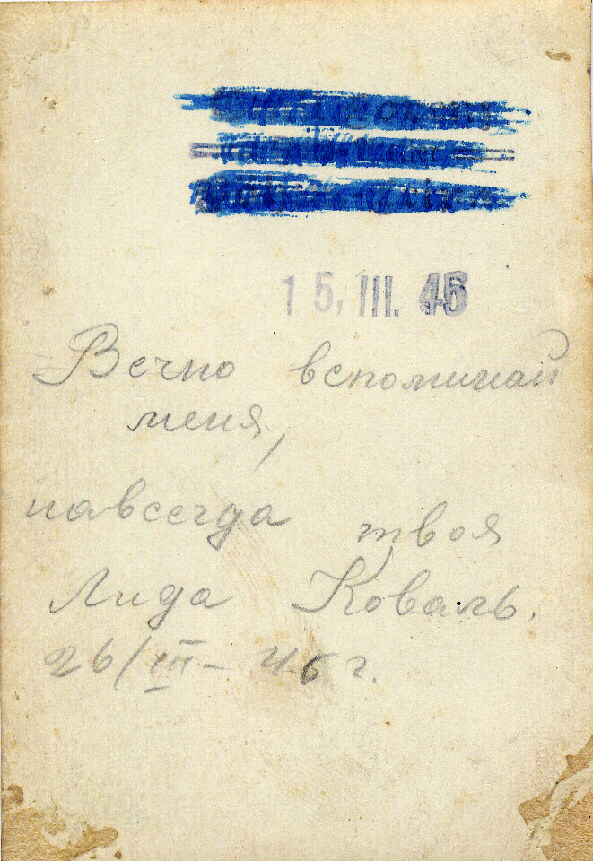 15. III. 46
Вечно вспоминай
меня,
навсегда твоя
Лида Коваль.
26/III – 46 г.